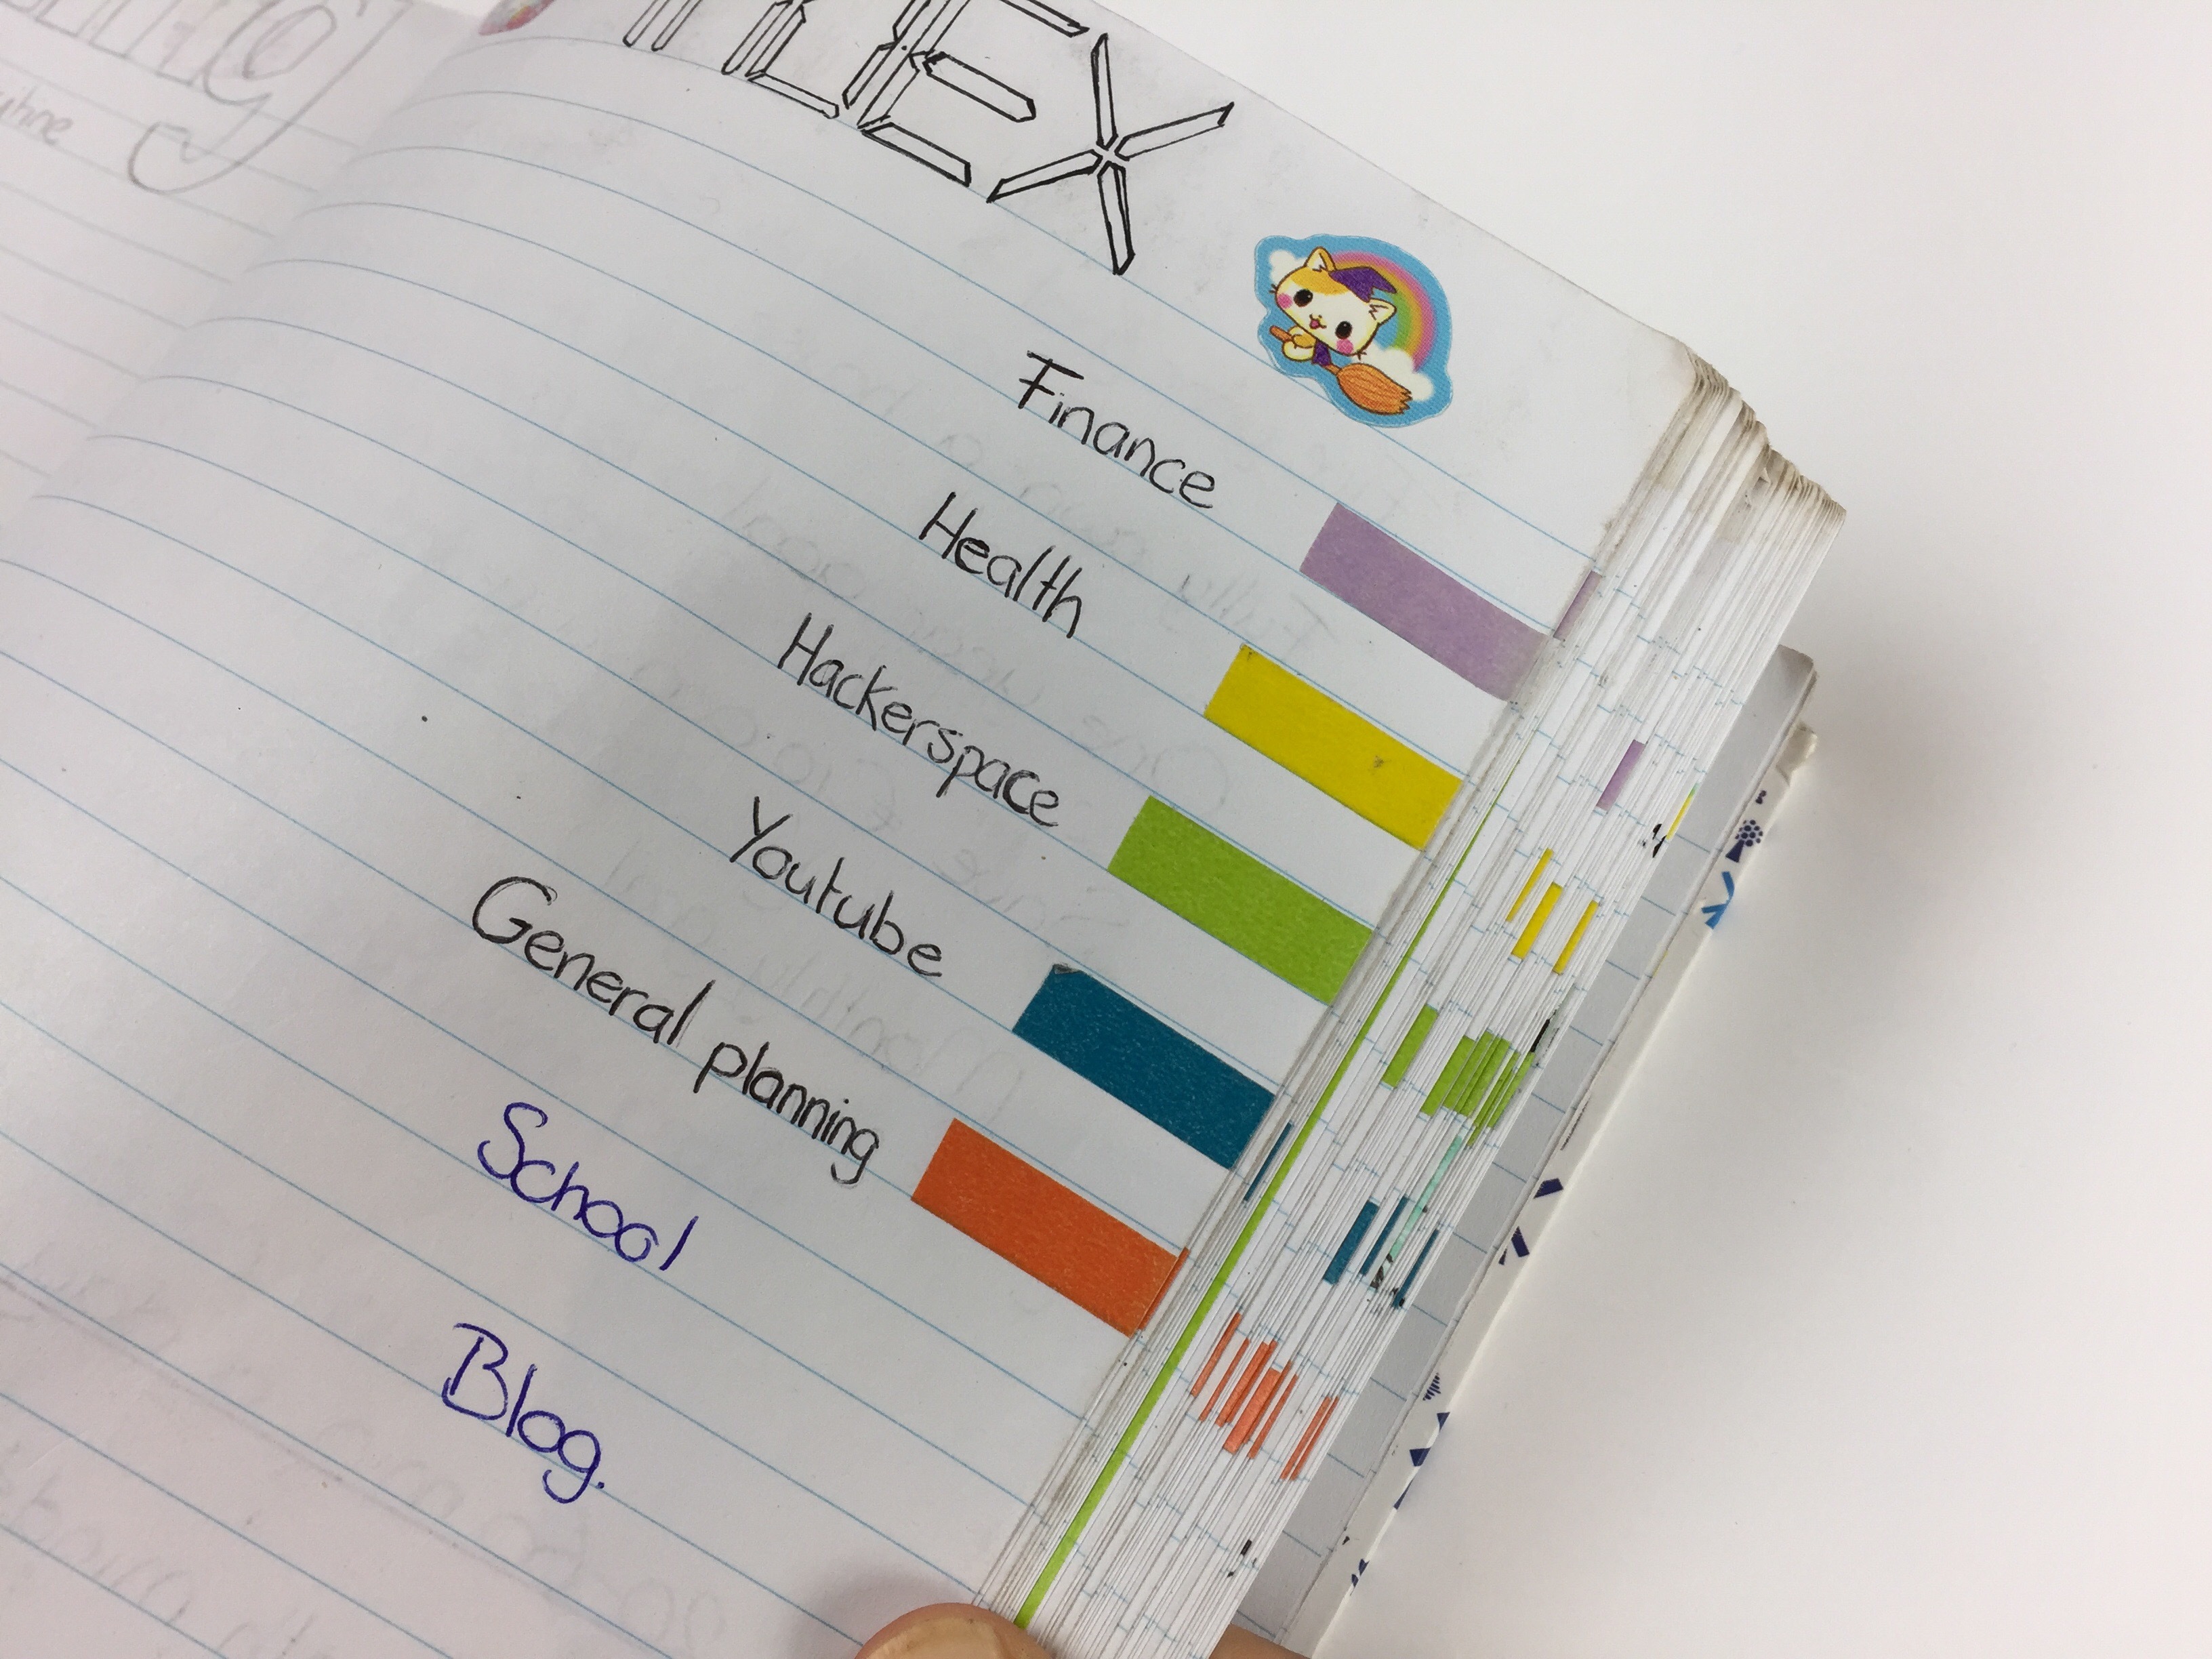 INDEX
Finance
Health
Hackerspace
Youtube
General planning
School
Blog.